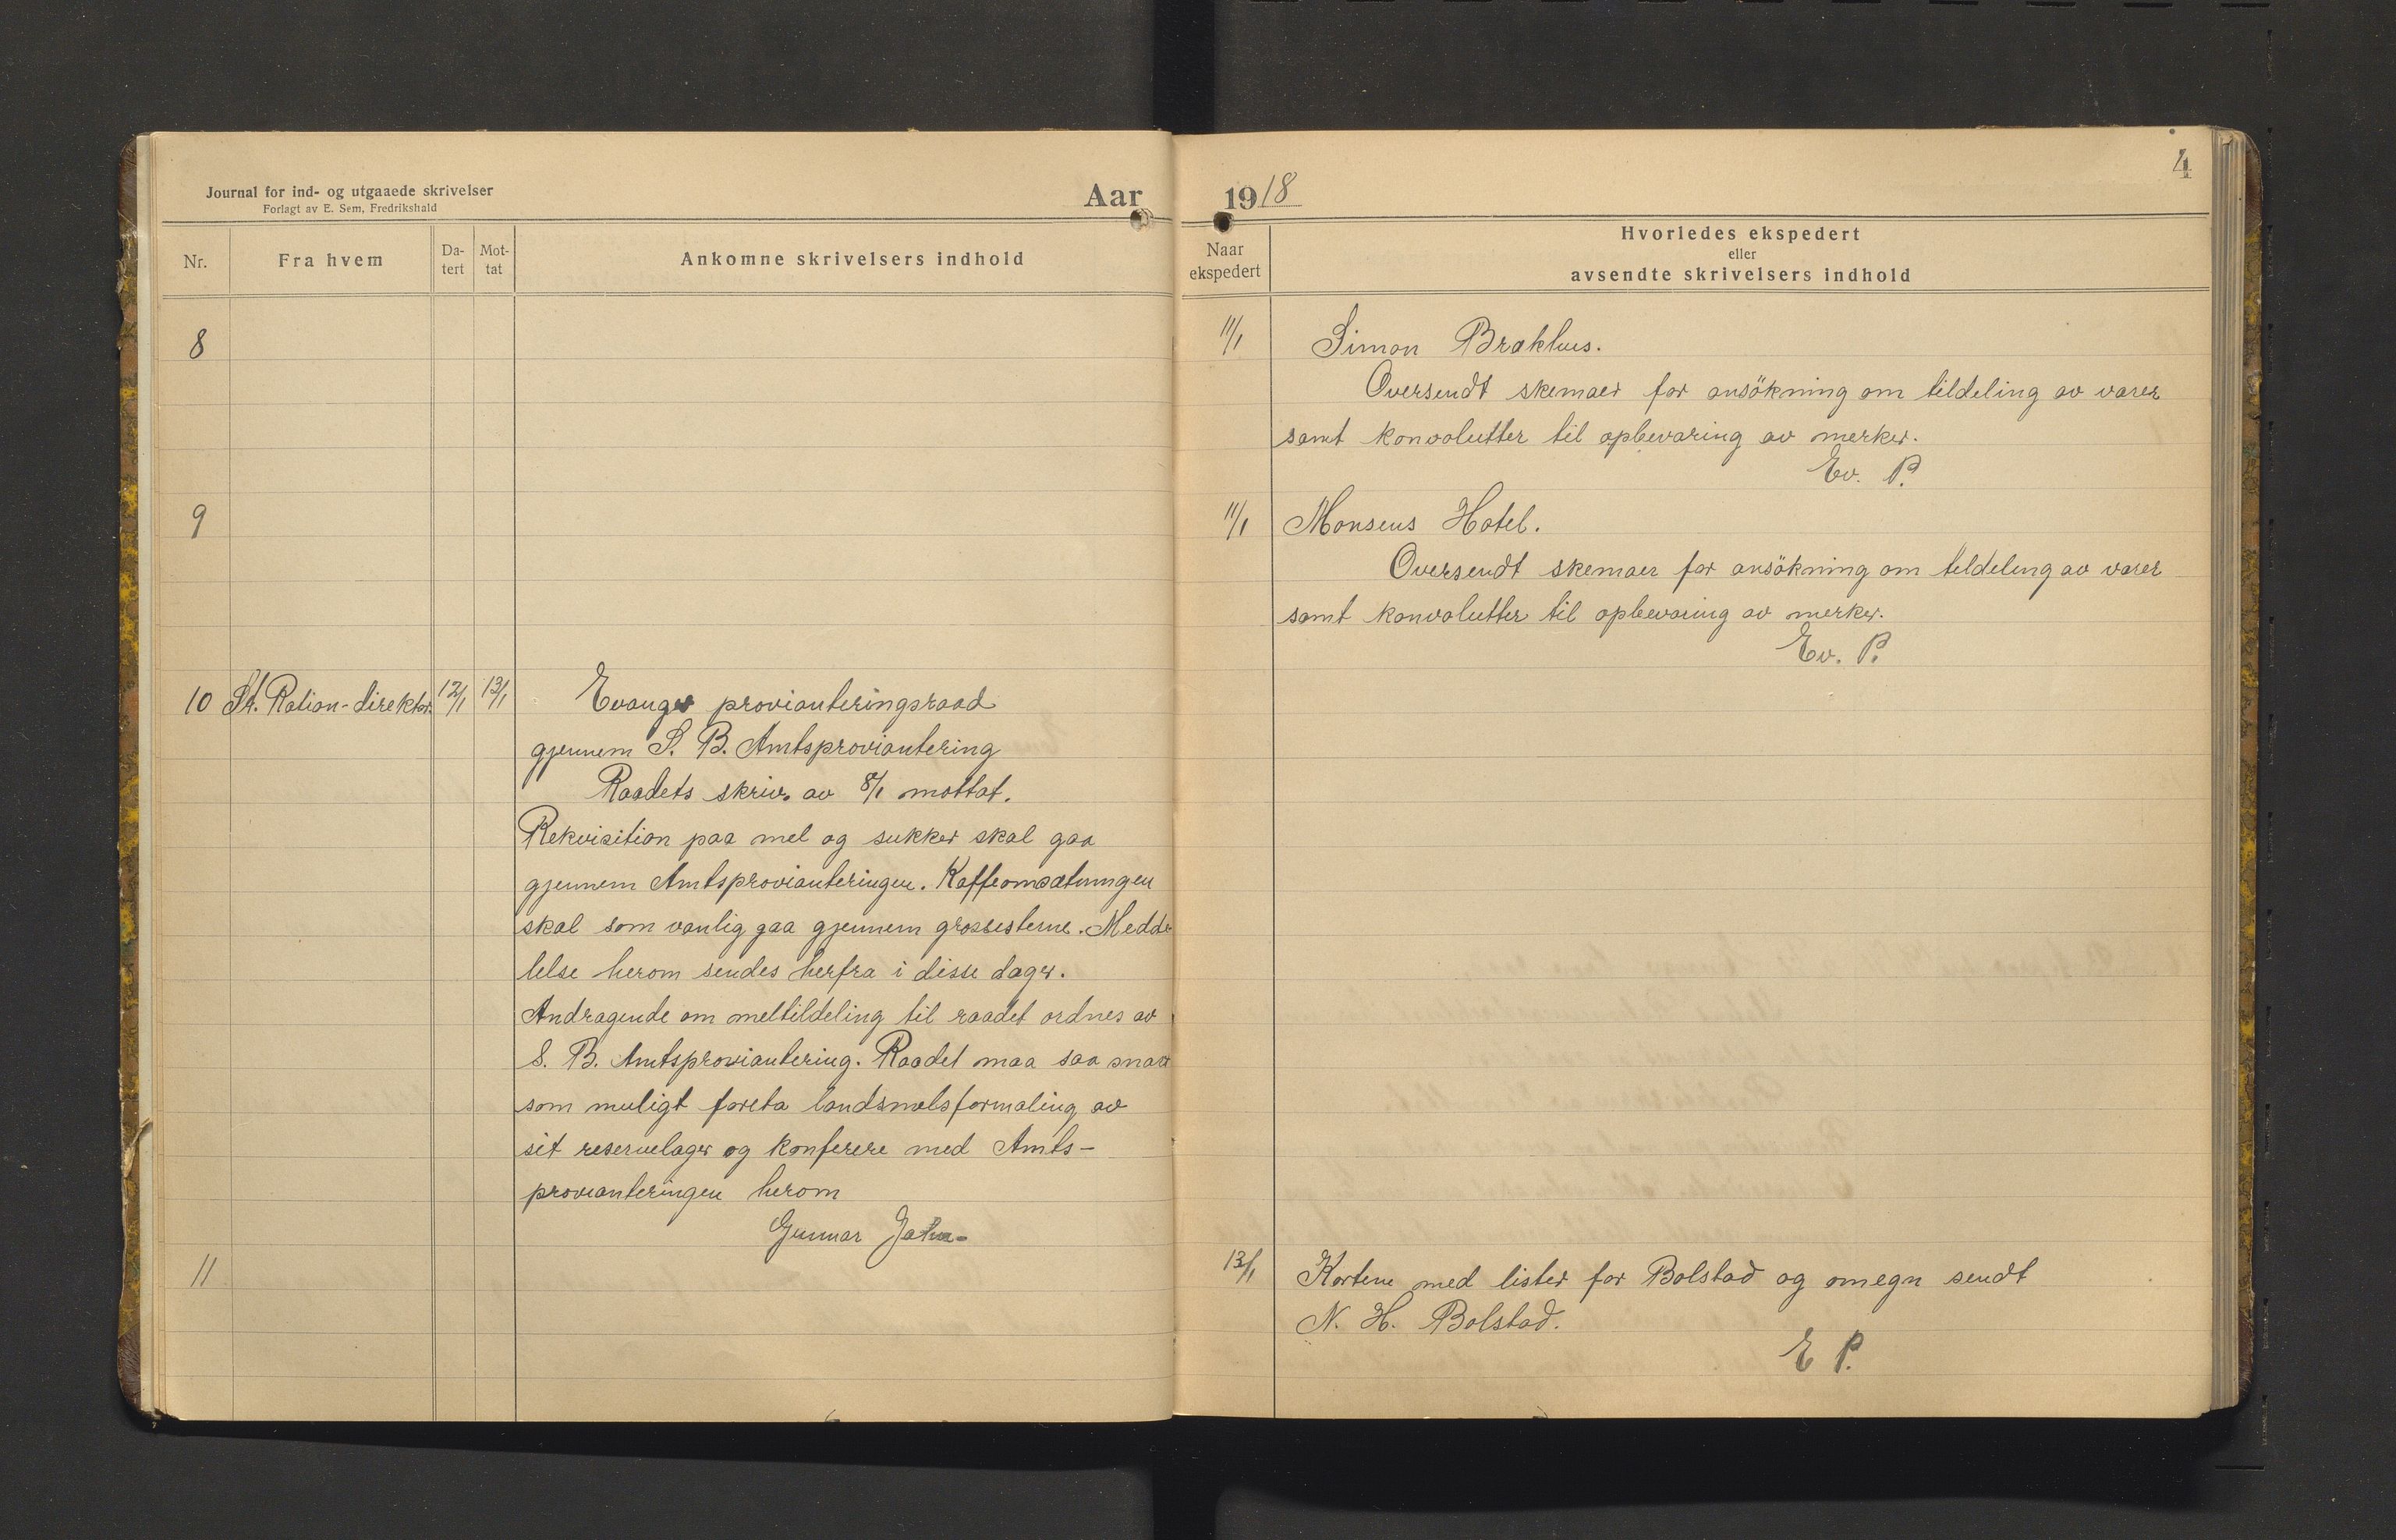 Journal for ind- og utgaaede skrivelser
Forlagt av E. Sem, Fredrikshald
Aar
Nr.
Fra hvem
Da-
tert
Mot-
tat
Ankomne skrivelsers indhold
8
9
10 St. Ration-direktør. 12/1 13/1 Evanger provianteringsraad
gjennem S. B. Amtsproviantering
Raadets skriv. av 8/1 mottat.
Rekvisition paa mel og sukker skal gaa
gjennem Amtsprovianteringen. Kaffeomsætningen
skal som vanlig gaa gjennem grossisterne. Medde
lelse herom sendes herfra i disse dager.
Andragende om meltildeling til raadet ordnes av
S. B. Amtsproviantering. Raadet maa saa snart
som muligt foreta landsmalsformaling av
sit reservelager og konferere med Amts-
provianteringen herom
Gunnar Jahn-
11
1918
4
Naar
ekspedert
Hvorledes ekspedert
eller
avsendte skrivelsers indhold
11/1 Simon Brakhus.
Oversendt skemaer for ansökning om tildeling av varer
samt konvolutter til opbevaring av merker.
Ev. P.
11/1 Monsens Hotel.
Oversendt skemaer for ansökning om tildeling av varer
samt konvolutter til opbevaring av merker.
Ev. P.
13/1 Kortene med lister for Bolstad og omegn sendt
N. H. Bolstad.
E P.